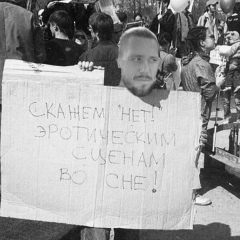 СКАЖЕМ "НЕТ!"
ЭРОТИЧЕСКИМ
СЦЕНАМ
ВО СНЕ!